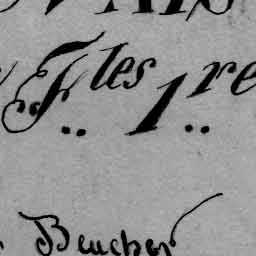 F..les 1..re
Beucher